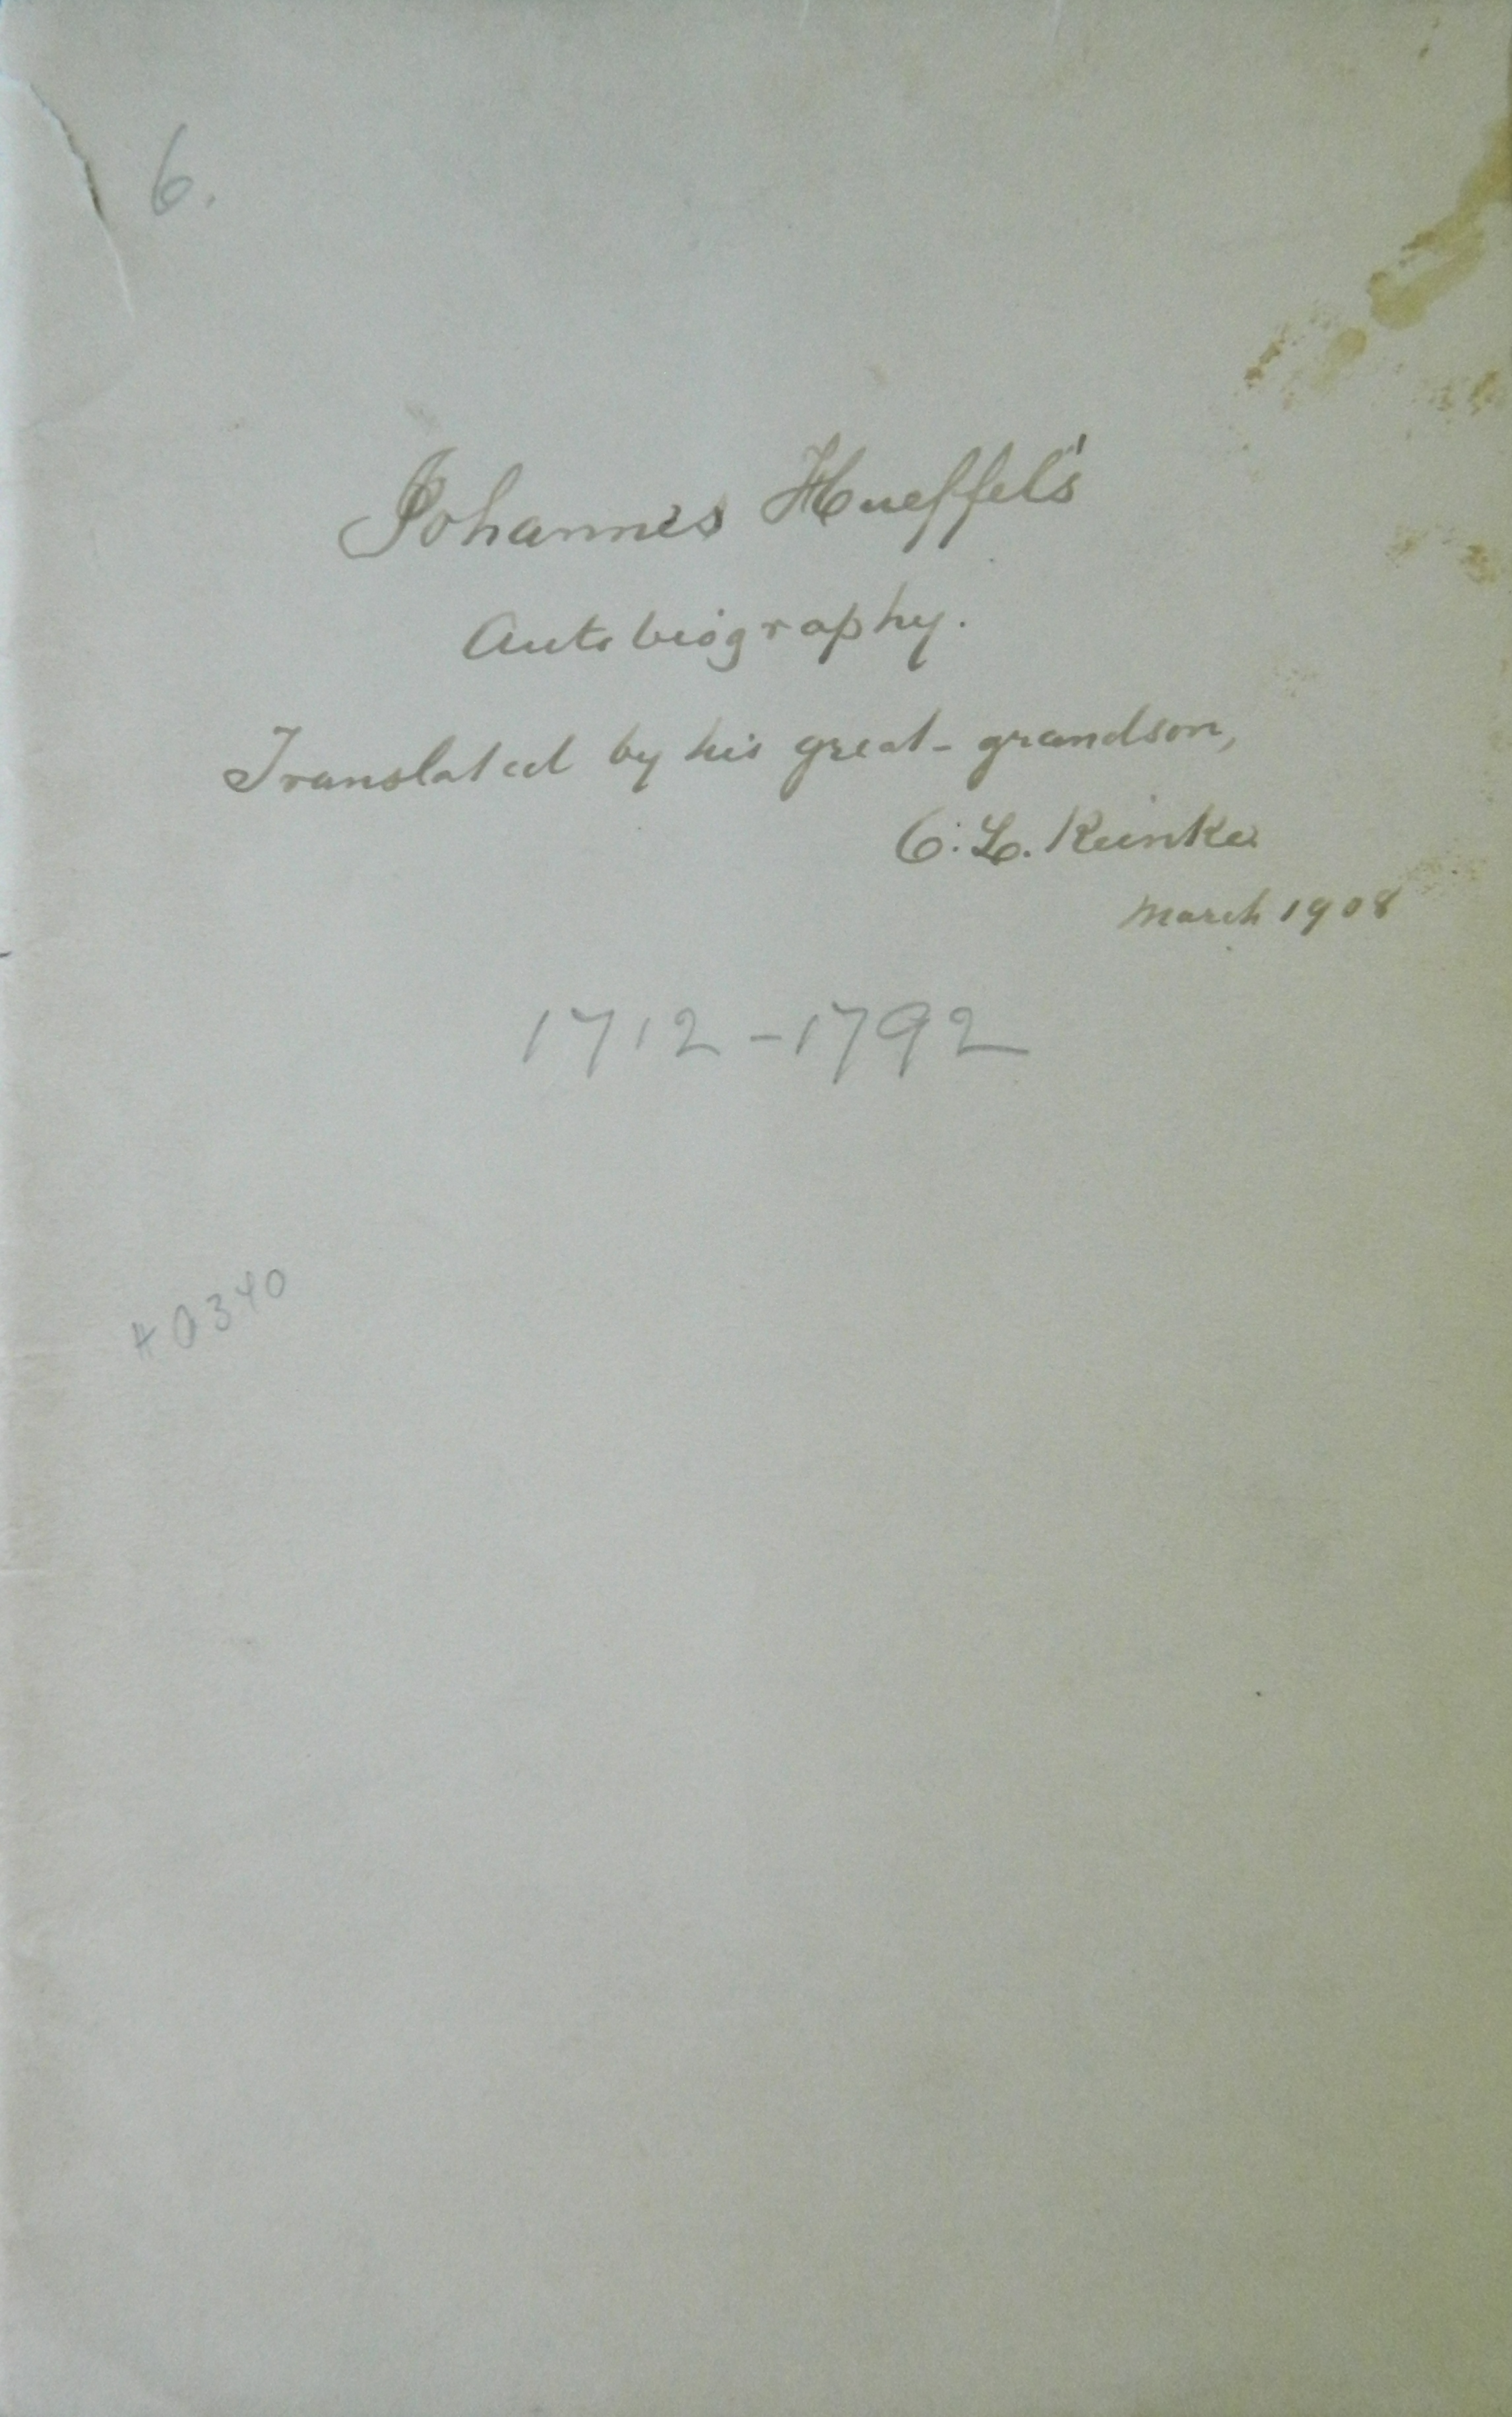 6.
Johannes Hueffel's
Autobiography.
Translated by his great-grandson,
C. L. Reinke
March 1908
1712-1792
A0340